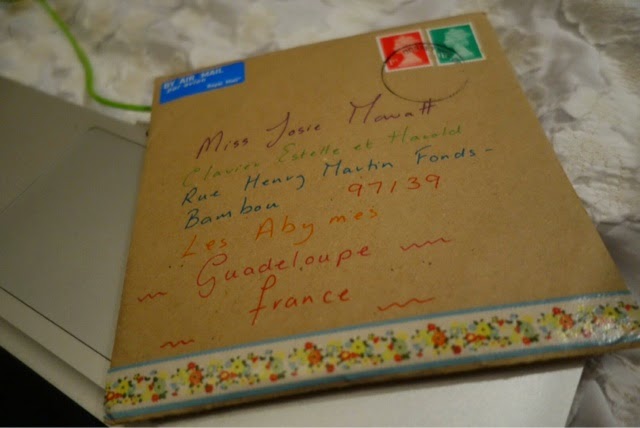 BY AIR MAIL
par avion
Royal Mail
Miss Josie Mowatt
Clavier Estelle et Harold
Rue Henry Martin Fonds-
Bambou 97139
Les Abymes
Guadeloupe
France